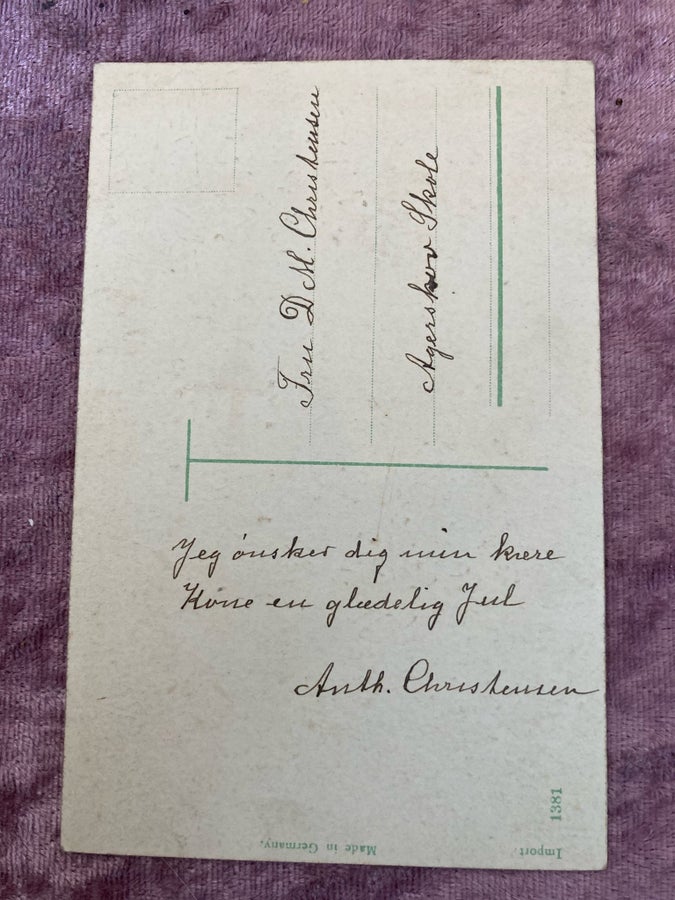 Fru D. M. Christensen
Agerskov Skole
Jeg ønsker dig min kære
Kone en glædelig Jul
Anth. Christensen
1381
Import.
Made in Germany.